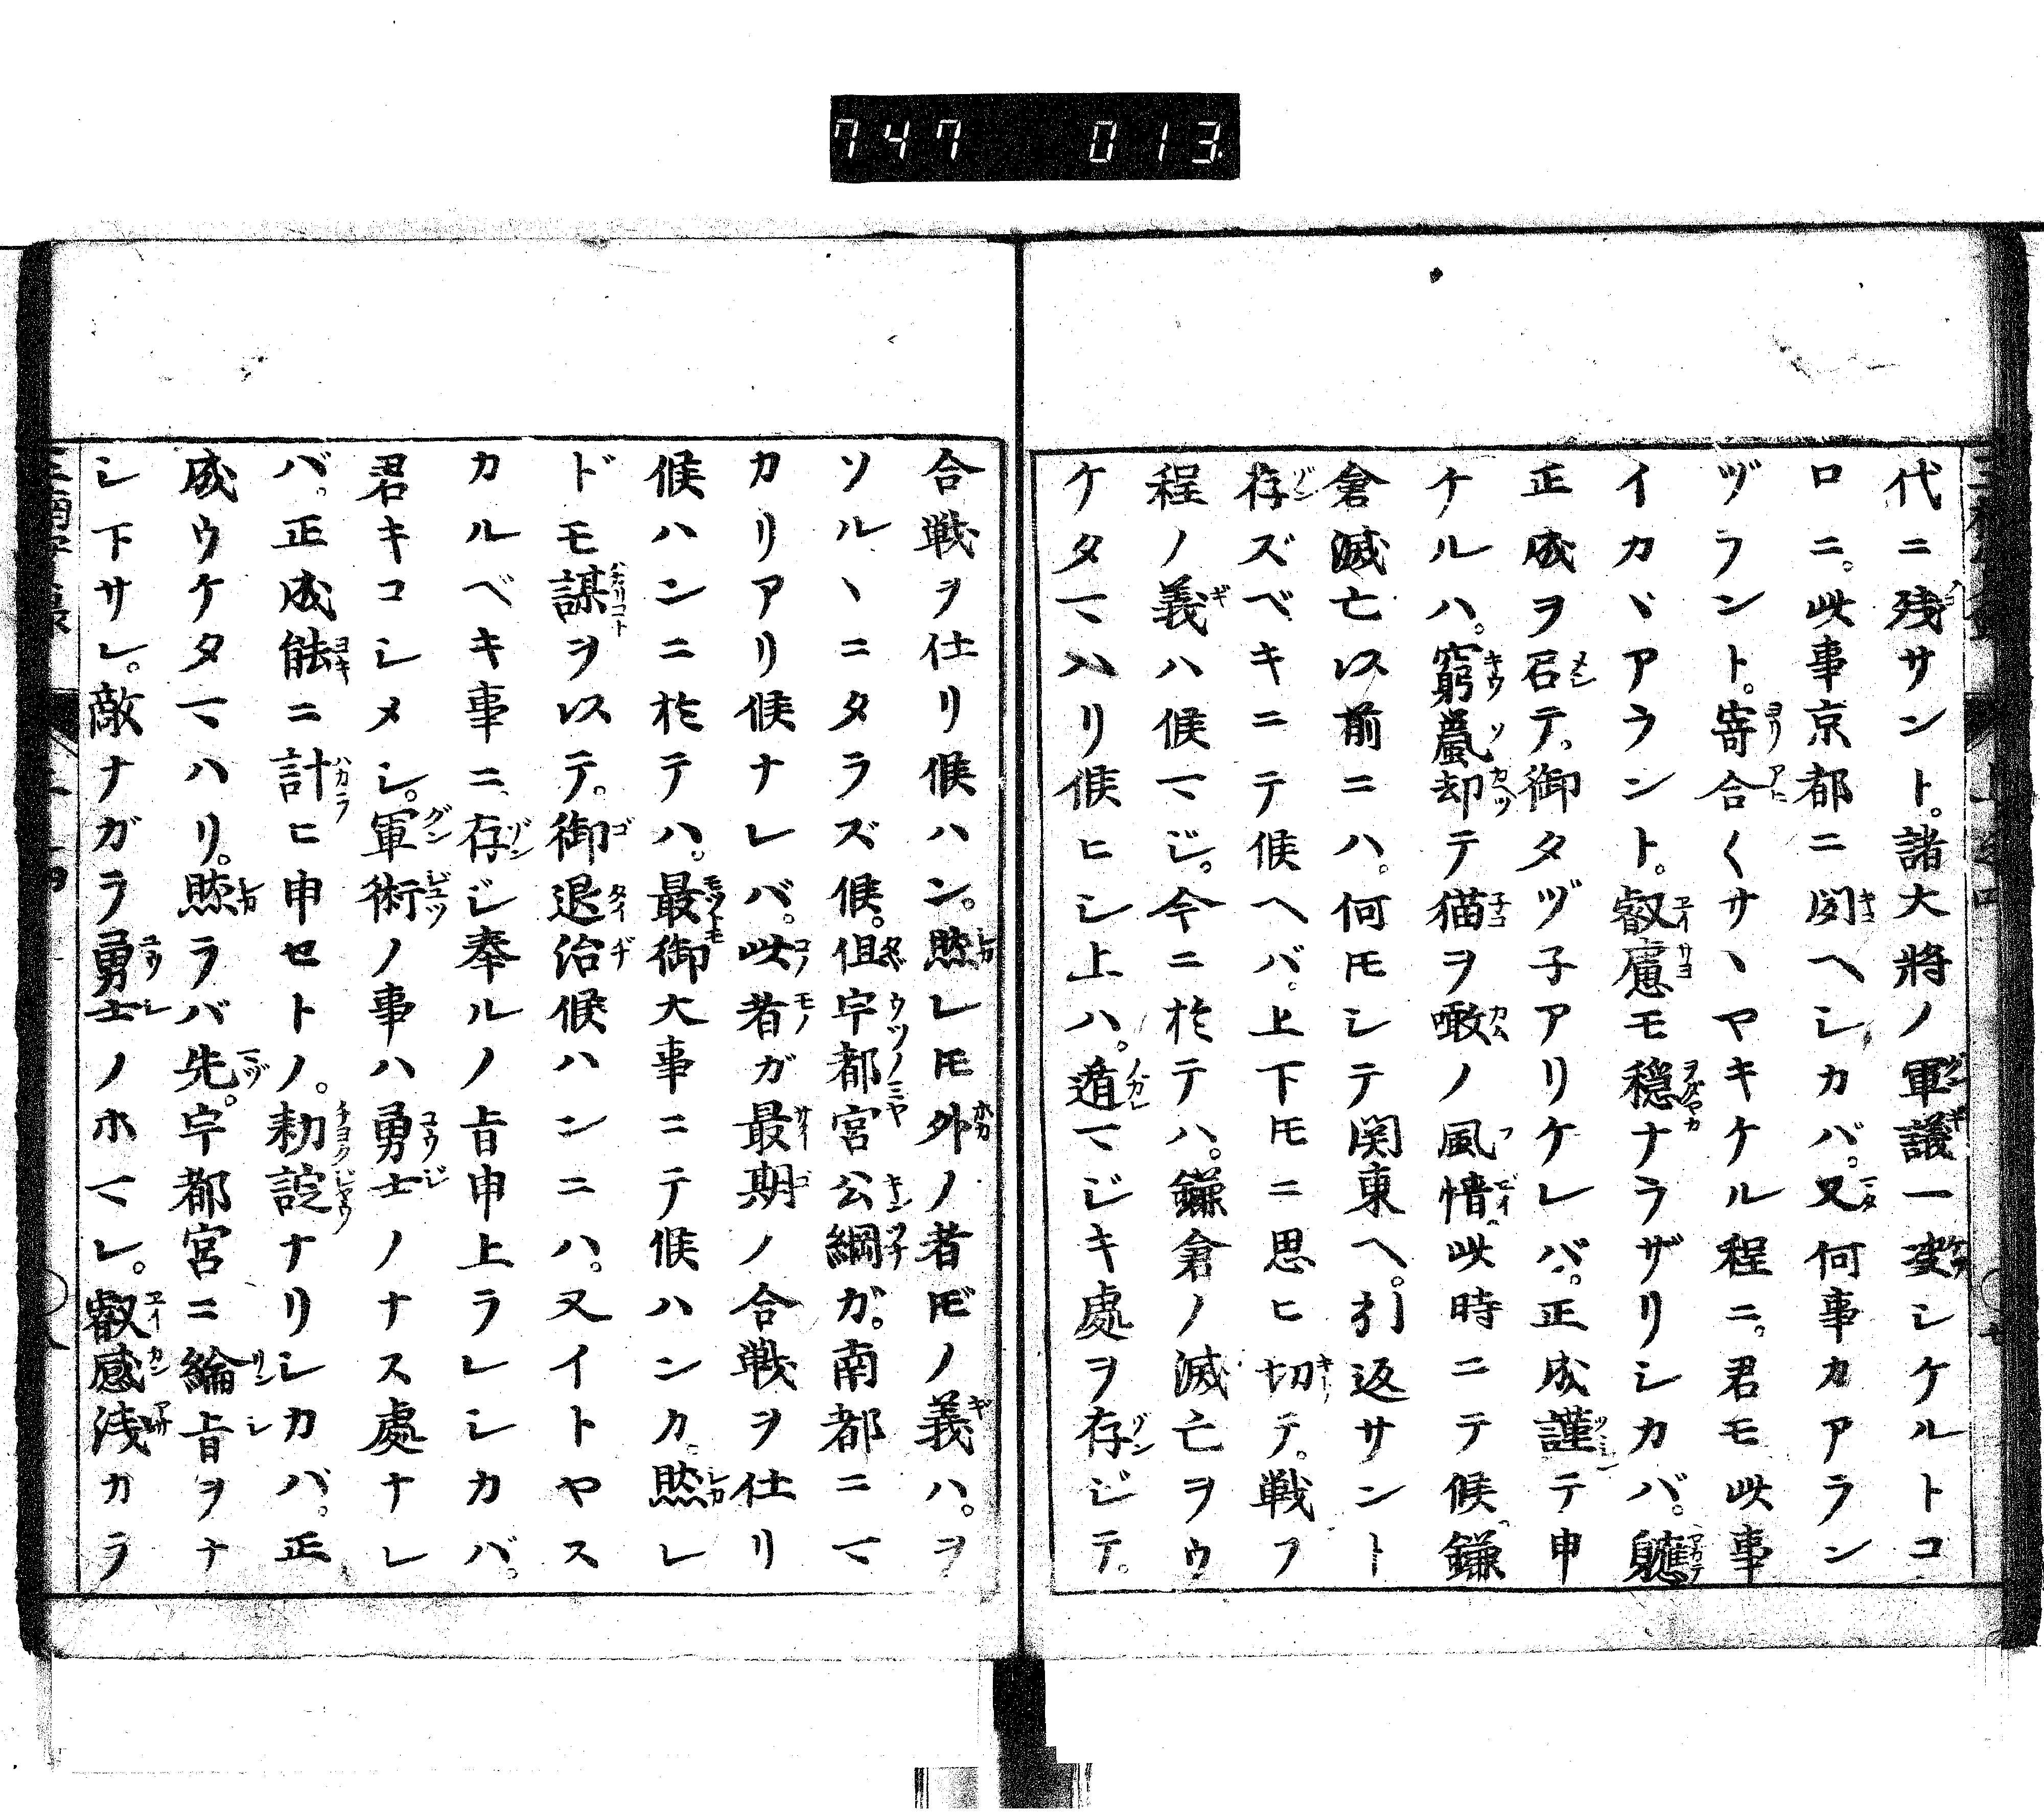 747 013
代ニ残サント。諸大將ノ軍議一変シケルトコ
ロニ。此事京都ニ聞ヘシカバ。又何事カアラン
ヅラント。寄合〱サヽヤキケル程ニ。君モ此事
イカヾアラント。叡慮モ穏ナラザリシカバ。軈
正成ヲ召テ。御タヅ子アリケレバ。正成謹テ申
ケルハ。窮鼠却テ猫ヲ噉ノ風情此時ニテ候鎌
倉滅亡以前ニハ。何モシテ関東ヘ。引返サント
存ズベキニテ候ヘバ。上下トモニ思ヒ切テ。戦フ
程ノ義ハ候マジ。今ニ於テハ。鎌倉ノ滅亡ヲウ
ケタマハリ候ヒシ上ハ。遁マジキ處ヲ存ジテ。
合戦ヲ仕リ候ハン。然レトモ外ノ者ドモノ義ハ。ヲ
ソルヽニタラズ候。但宇都宮公綱ガ。南都ニマ
カリアリ候ナレバ。此者ガ最期ノ合戦ヲ仕リ
候ハンニ於テハ。最御大事ニテ候ハンカ。然レ
ドモ謀ヲ以テ。御退治候ハンニハ。又イトヤス
カルベキ事ニ存ジ奉ルノ旨申上ラレシカバ。
君キコシメシ。軍術ノ事ハ勇士ノナス處ナレ
バ。正成能ニ計ヒ申セトノ。勅諚ナリシカバ。正
成ウケタマハリ。然ラバ先。宇都宮ニ綸旨ヲナ
シ下サレ。敵ナガラ勇士ノホマレ。叡感浅カラ